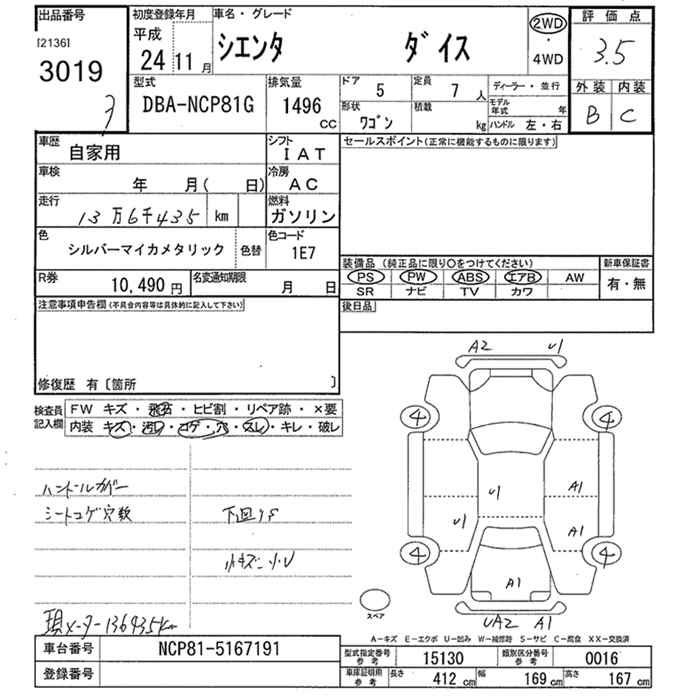 出品番号 初度登録年月 車名・グレード 評価点
[2136] 平成 シエンタ ダイス 2WD・4WD 3.5
3019 24 11月
型式 排気量 ドア 定員 ディーラー・並行 外装 内装
DBA-NCP81G 1496 CC 5 7人 モデル年式 年 B C
形状 ワゴン 積載 kg ハンドル 左・右
車歴 自家用 シフト IAT セールスポイント(正常に機能するものに限ります)
車検 年 月( 日) 冷房 AC
走行 13万6千435 km 燃料 ガソリン
色 シルバーマイカメタリック 色替 色コード 1E7
装備品(純正品に限り〇をつけてください) 新車保証書
PS PW ABS エアB AW 有・無
SR ナビ TV カワ
R券 10,490円 名変通知期限 月 日
後日品
注意事項申告欄(不具合内容等は具体的に記入して下さい)
修復歴 有〔箇所 〕
検査員記入欄 FW キズ・飛石・ヒビ割・リペア跡・×要
内装 キズ・汚レ・コゲ・穴・スレ・キレ・破レ
A2 U1
4 4
ハンドルカバー
U1 A1
シートコゲ穴数 下回りS
U1 A1
小キズ
4 4
A1
スペア
現メーター136435km
UA2 A1
A-キズ E-エクボ U-凹み W-補修跡 S-サビ C-腐食 XX-交換済
車台番号 NCP81-5167191 型式指定番号 参考 15130 類別区分番号 参考 0016
登録番号 車庫証明用 参考 長さ 412 cm 幅 169 cm 高さ 167 cm